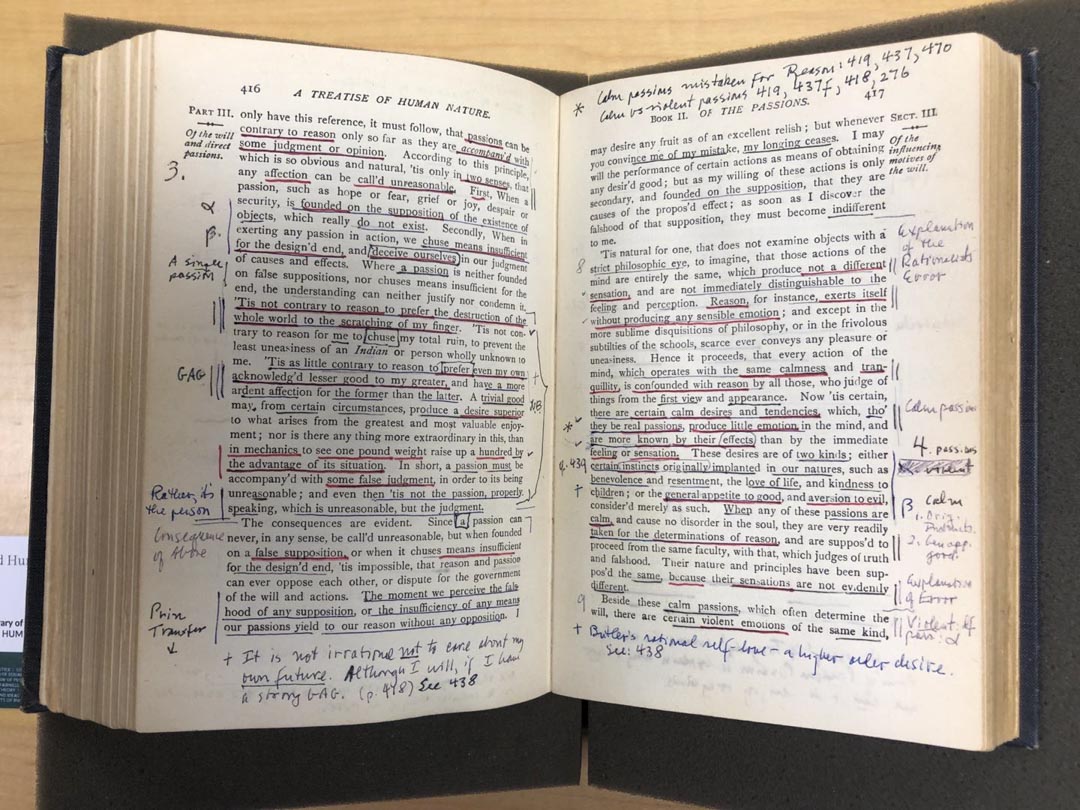 416 A TREATISE OF HUMAN NATURE.
PART III.
Of the will
and direct
passions.
3.
α
β.
A single
passion
GAG
Rather, it's
the person
Consequence
of Above
Prin
Transfer
only have this reference, it must follow, that passions can be
contrary to reason only so far as they are accompany'd with
some judgment or opinion. According to this principle,
which is so obvious and natural, 'tis only in two senses, that
any affection can be call'd unreasonable. First, When a
passion, such as hope or fear, grief or joy, despair or
security, is founded on the supposition of the existence of
objects, which really do not exist. Secondly, When in
exerting any passion in action, we chuse means insufficient
for the design'd end, and deceive ourselves in our judgment
of causes and effects. Where a passion is neither founded
on false suppositions, nor chuses means insufficient for the
end, the understanding can neither justify nor condemn it.
'Tis not contrary to reason to prefer the destruction of the
whole world to the scratching of my finger. 'Tis not con-
trary to reason for me to chuse my total ruin, to prevent the
least uneasiness of an Indian or person wholly unknown to
me. 'Tis as little contrary to reason to prefer even my own
acknowledg'd lesser good to my greater, and have a more
ardent affection for the former than the latter. A trivial good
may, from certain circumstances, produce a desire superior
to what arises from the greatest and most valuable enjoy-
ment; nor is there any thing more extraordinary in this, than
in mechanics to see one pound weight raise up a hundred by
the advantage of its situation. In short, a passion must be
accompany'd with some false judgment, in order to its being
unreasonable; and even then 'tis not the passion, properly
speaking, which is unreasonable, but the judgment.
The consequences are evident. Since a passion can
never, in any sense, be call'd unreasonable, but when founded
on a false supposition, or when it chuses means insufficient
for the design'd end, 'tis impossible, that reason and passion
can ever oppose each other, or dispute for the government
of the will and actions. The moment we perceive the fals
hood of any supposition, or the insufficiency of any means
our passions yield to our reason without any opposition.
+ It is not irrational not to care about my
own future. Although I will, if I have
a strong GAG. (p. 418) See 438
* Calm passions mistaken for Reason: 419, 437, 470
Calm vs violent passions 419, 437f, 418, 276
BOOK II. OF THE PASSIONS. 417
may desire any fruit as of an excellent relish; but whenever
you convince me of my mistake, my longing ceases. I may
will the performance of certain actions as means of obtaining
any desir'd good; but as my willing of these actions is only
secondary, and founded on the supposition, that they are
causes of the propos'd effect; as soon as I discover the
falshood of that supposition, they must become indifferent
to me.
'Tis natural for one, that does not examine objects with a
strict philosophic eye, to imagine, that those actions of the
mind are entirely the same, which produce not a different
sensation, and are not immediately distinguishable to the
feeling and perception. Reason, for instance, exerts itself
without producing any sensible emotion; and except in the
more sublime disquisitions of philosophy, or in the frivolous
subtilties of the schools, scarce ever conveys any pleasure or
uneasiness. Hence it proceeds, that every action of the
mind, which operates with the same calmness and tran-
quillity, is confounded with reason by all those, who judge of
things from the first view and appearance. Now 'tis certain,
there are certain calm desires and tendencies, which, tho'
they be real passions, produce little emotion in the mind, and
are more known by their effects than by the immediate
feeling or sensation. These desires are of two kinds; either
certain instincts originally implanted in our natures, such as
benevolence and resentment, the love of life, and kindness to
children; or the general appetite to good, and aversion to evil,
consider'd merely as such. When any of these passions are
calm, and cause no disorder in the soul, they are very readily
taken for the determinations of reason, and are suppos'd to
proceed from the same faculty, with that, which judges of truth
and falshood. Their nature and principles have been sup-
pos'd the same, because their sensations are not evidently
different.
Beside these calm passions, which often determine the
will, there are certain violent emotions of the same kind,
+ Butler's rational self-love – a higher order desire.
See: 438
SECT. III.
Of the
influencing
motives of
the will.
Explanation
of the
Rationalists
Error
Calm passion
4. passions
β calm
1. Orig.
2. Gen app.
good
Explanation
of Error
8
439
9